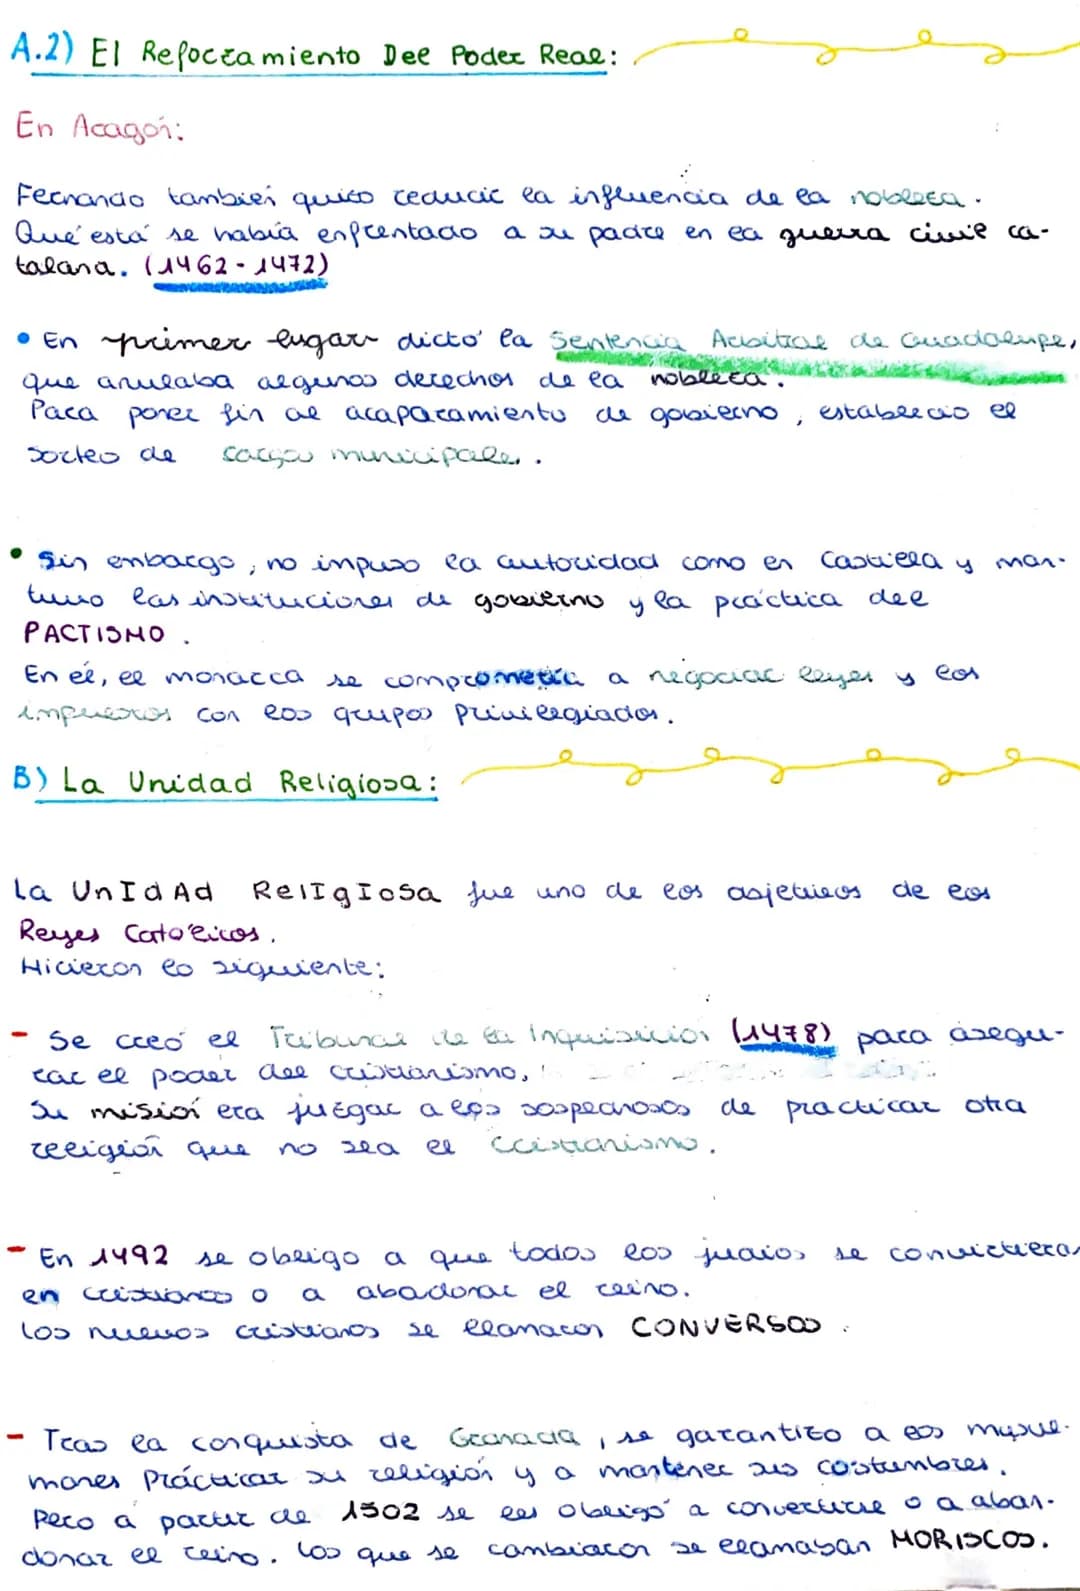 A.2) El Reforzamiento Del Poder Real:
En Aragón:
Fernando también quiso reducir la influencia de la nobleza.
Que ésta se había enfrentado a su padre en la guerra civil ca-
talana. (1462-1472)
• En primer lugar dictó la Sentencia Arbitral de Guadalupe,
que anulaba algunos derechos de la nobleza.
Para poner fin al acaparamiento de gobierno, establecio el
sorteo de cargos municipales.
• Sin embargo, no impuso la autoridad como en Castilla y man-
tuvo las instituciones de gobierno y la práctica del
PACTISMO.
En él, el monarca se comprometía a negociar leyes y los
impuestos con los grupos privilegiados.
B) La Unidad Religiosa:
La UnIdAd RelIgIosa fue uno de los objetivos de los
Reyes Católicos.
Hicieron lo siguiente:
- Se creó el Tribunal de la Inquisición (1478) para asegu-
rar el poder del cristianismo,
Su misión era juzgar a los sospechosos de practicar otra
religión que no sea el cristianismo.
- En 1492 se obligo a que todos los judios se convirtieran
en cristianos o a abadonar el reino.
Los nuevos cristianos se llamaron CONVERSOS.
- Tras la conquista de Granada, se garantizo a los musul-
manes Prácticar su religión y a mantener sus costumbres.
Pero a partir de 1502 se les obligó a convertirse o a aban-
donar el reino. Los que se cambiaron se llamaban MORISCOS.